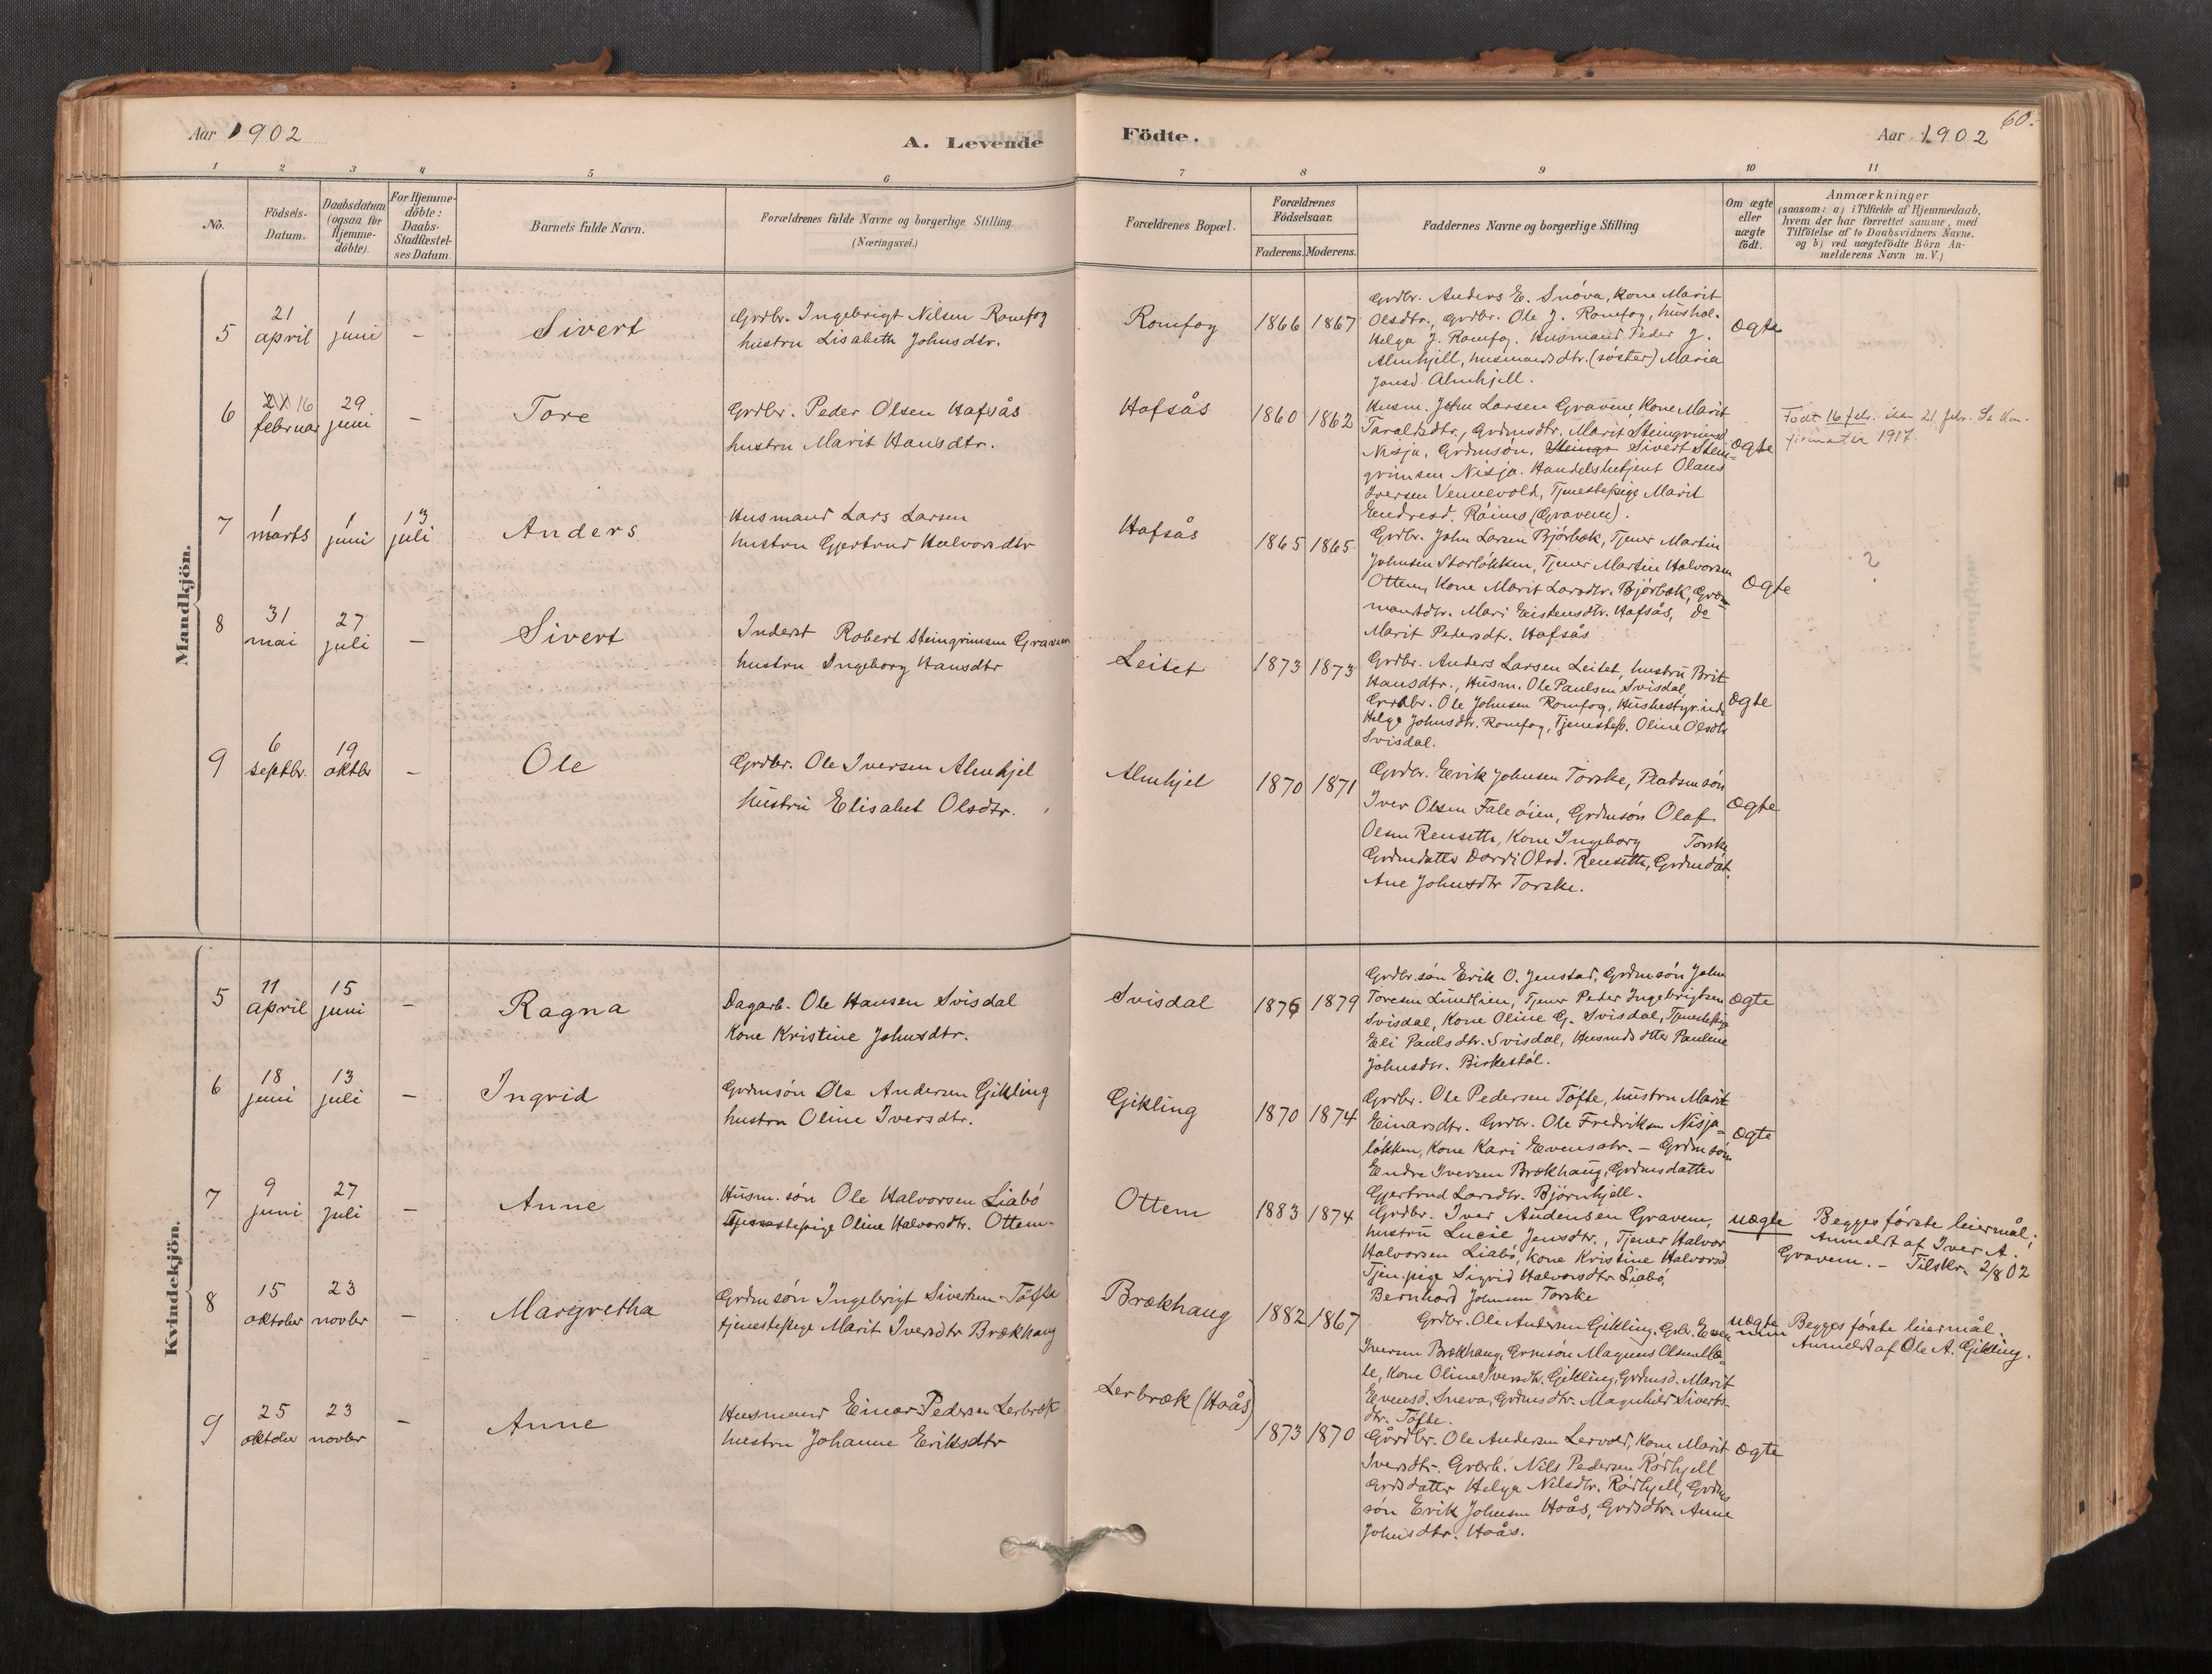 Aar 1902
A. Levende
Födte.
Aar 1902
60.
1 2 3 4 5 6 7 8 9 10 11
No.
Födsels-
Datum.
Daabsdatum
(ogsaa for
Hjemme-
döbte).
For Hjemme-
döbte:
Daabs-
Stadfæstel-
ses Datum.
Barnets fulde Navn.
Forældrenes fulde Navne og borgerlige Stilling.
(Næringsvei.)
Forældrenes Bopæl.
Forældrenes
Födselsaar.
Faderens. Moderens.
Faddernes Navne og borgerlige Stilling
Om ægte
eller
uægte
födt.
Anmærkninger
(saasom: a) i Tilfælde af Hjemmedaab,
hvem der har forrettet samme, med
Tilföielse af to Daabsvidners Navne,
og b) ved uægtefödte Börn An-
melderens Navn m. V.)
Mandkjön.
5
21
april
1
juni
–
Sivert
Grdbr. Ingebrigt Nilsen Romfog
hustru Lisabeth Johnsdtr.
Romfog
1866 1867
Grdbr. Anders E. Snöva, Kone Marit
Olsdtr., Grdbr. Ole J. Romfog, hushol.
Helga J. Romfog. Husmand Peder J.
Almhjell, husmandsdtr. (söster) Maria
Jonsd. Almhjell.
Ægte
6
21 16
februar
29
juni
–
Tore
Grdbr. Peder Olsen Hafsås
hustru Marit Hansdtr.
Hafsås
1860 1862
Husm. John Larsen Gravem, Kone Marit
Taraldsdtr., Grdmsdtr. Marit Steingrimsd.
Nisja, Grdmsön. Steingr Sivert Stein-
grimsen Nisja. Handelsbetjent Olaus
Iversen Vennevold, Tjenestepige Marit
Endresd. Röimo (Gravem).
Ægte
Født 16 feb. ikke 21 febr. Se Kon-
firmatia 1917.
7
1
marts
1
juni
13
juli
Anders
Husmand Lars Larsen
hustru Gjertrud Halvorsdtr
Hafsås
1865 1865
Grdbr. John Larsen Björbæk, Tjener Martin
Johnsen Storlökken, Tjener Martin Halvorsen
Ottem, Kone Marit Larsdtr. Björbæk, Grd-
mandsdtr. Mari Eistensdtr. Hafsås, do
Marit Pedersdt. Hafsås
Ægte
?
8
31
mai
27
juli
–
Sivert
Inderst Robert Steingrimsen Gravem
hustru Ingeborg Hansdtr
Leitet
1873 1873
Grdbr. Anders Larsen Leitet, hustru Brit
Hansdtr., Husm. Ole Paulsen Svisdal,
Grdbr. Ole Johnsen Romfog, Husbestyrinde
Helga Johnsdtr. Romfog, Tjenestep. Oline Olsdtr
Svisdal.
Ægte
9
6
septbr.
19
oktbr
–
Ole
Grdbr. Ole Iversen Almhjel
hustru Elisabet Olsdtr.
Almhjel
1870 1871
Grdbr. Eerik Johnsen Torske, Pladsmsön
Iver Olsen Faleöien, Grdmsön Olaf
Olsen Rensetth, Kone Ingeborg Torske
Grdmdatter Dordi Olsd. Rensetth, Grdmdat.
Ane Johnsdtr Torske.
Ægte
Kvindekjön.
5
11
april
15
juni
–
Ragna
Dagarb. Ole Hansen Svisdal
Kone Kristine Johnsdtr.
Svisdal
1876 1879
Grdbr.sön Erik O. Jenstad, Grdmsön John
Toresen Lundlien, Tjener Peder Ingebrigtsen
Svisdal, Kone Oline G. Svisdal, Tjenestepige
Eli Paulsdtr. Svisdal, Husmdsdtter Pauline
Johnsdtr. Birkestöl.
Ægte
6
18
juni
13
juli
–
Ingrid
Grdmsön Ole Andersen Gjikling
hustru Oline Iversdtr.
Gjikling
1870 1874
Grdbr. Ole Pedersen Töfte, hustru Marit
Einarsdtr. Grdbr. Ole Fredriksen Nisja-
lökken, Kone Kari Evensdtr. – Grdmsön
Endre Iversen Brækhaug, Grdmsdatter
Gjertrud Larsdtr. Björnhjell.
Ægte
7
9
juni
27
juli
–
Anne
Husm. sön Ole Halvorsen Liabö
Tjenestepige Oline Halvorsdtr. Ottem
Ottem
1883 1874
Grdbr. Iver Andersen Gravem,
hustru Lucie Jensdtr., Tjener Halvor
Halvorsen Liabö, Kone Kristine Halvorsd.
Tjen.pige Sigrid Halvorsdtr Liabö,
Bernhard Johnsen Torske
uægte
Begges förste leiermål;
Anmeldt af Iver A.
Gravem. – Tilskr. 2/8 02
8
15
oktober
23
novbr
–
Margretha
Grdmsön Ingebrigt Sivertsen Töfte
tjenestepige Marit Iversdtr Brækhaug
Brækhaug
1882 1867
Grdbr. Ole Andersen Gjikling. Grbr. Even
Iversen Brækhaug, Grmsön Magnus Olsen
Kone Oline Iversdtr. Gjikling, Grdmsd. Marit
Evensd. Sneva, Grdmsdtr. Magnhild Siverts-
dtr. Töfte.
uægte
Begges förste leiermål.
Anmeldt af Ole A. Gjikling.
9
25
oktober
23
novbr
–
Anne
Husmand Einar Pedersen Lerbræk
hustru Johanne Eriksdtr
Lerbræk (Hoås)
1873 1870
Gårdbr. Ole Andersen Lervold, Kone Marit
Iversdtr. Grdbr. Nils Pedersen Rödhjell
Grdsdatter Helga Nilsdtr. Rödhjell, Grdms
sön Erik Johnsen Hoås, Grdsdtr. Anne
Johnsdtr. Hoås.
Ægte